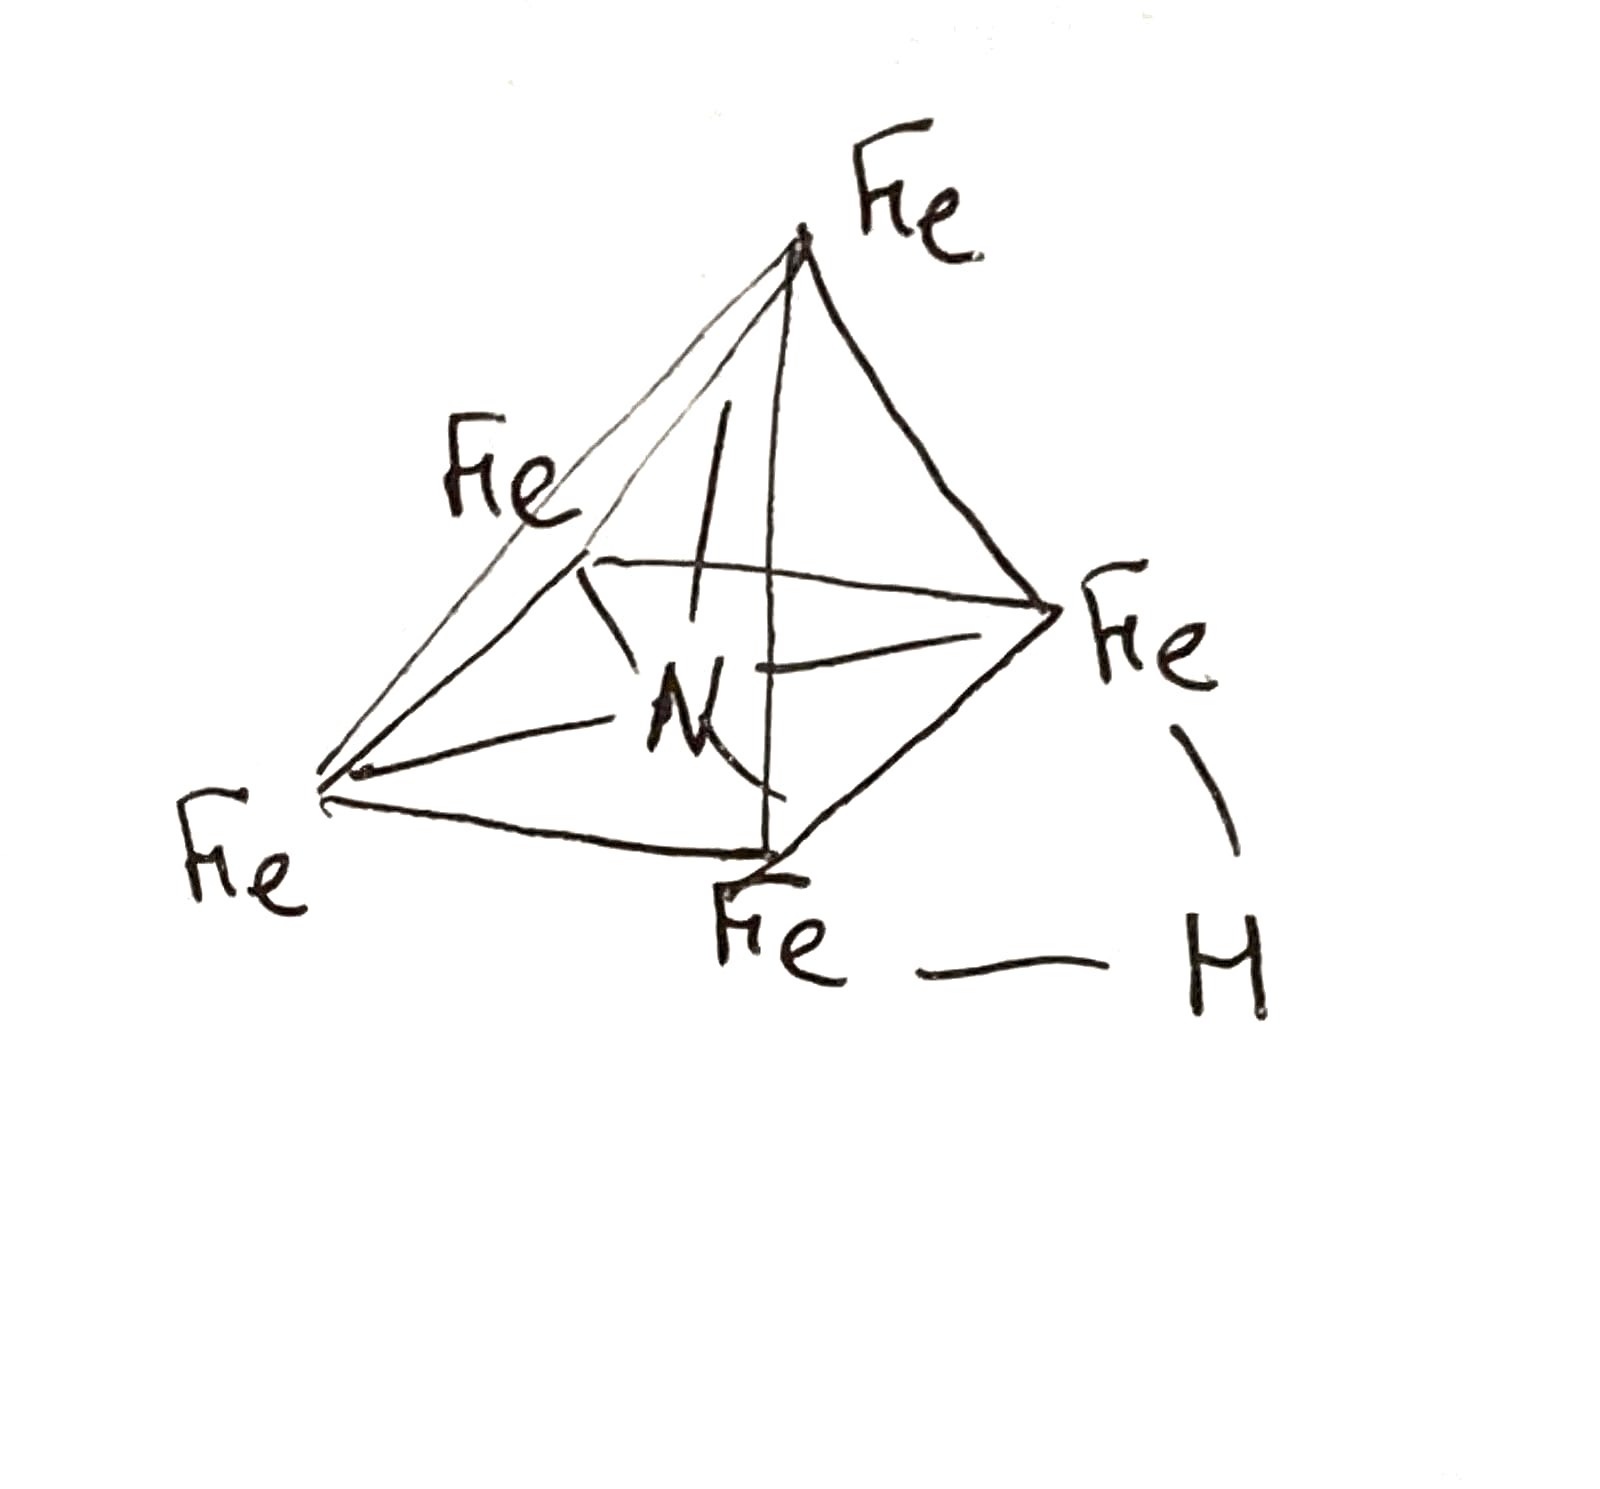 Fe
Fe
Fe
N
Fe
Fe
H